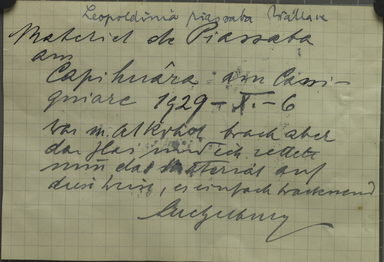 Leopoldinia piassaba Wallace
Material de Piassaba
am
Capihuára am Cassi-
quiare 1929 - X. - 6
War m. Alkohol brach aber
das Glas und ich rettete
nun das Material auf
diese Weise, es einfach trocknend
Luetzelburg